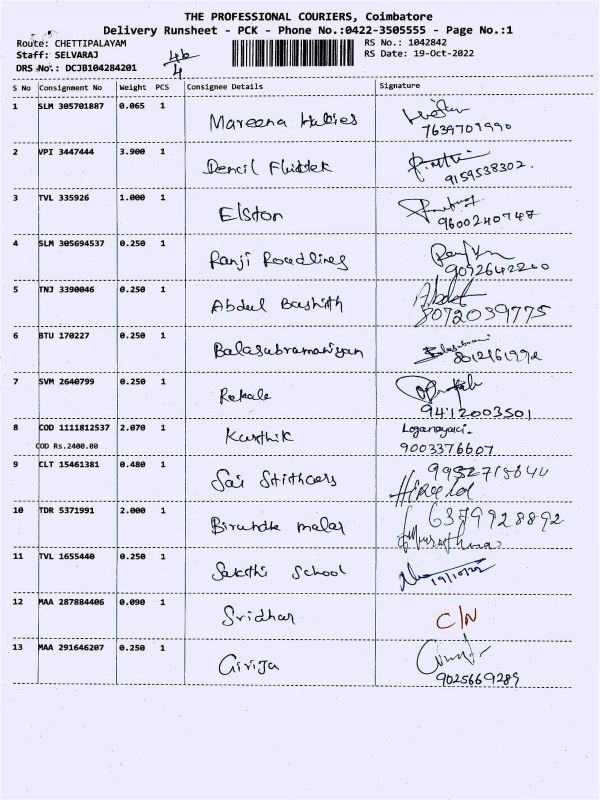 THE PROFESSIONAL COURIERS, Coimbatore
Delivery Runsheet - PCK - Phone No.:0422-3505555 - Page No.:1
Route: CHETTIPALAYAM
RS No.: 1042842
Staff: SELVARAJ
RS Date: 19-Oct-2022
DRS No.: DCJB104284201
46/4
S No Consignment No Weight PCS Consignee Details Signature
1 SLM 305701887 0.065 1 Mareena Hubies
7639709990
2 VPI 3447444 3.900 1 Dencil
9159538302.
3 TVL 335926 1.000 1 Elston
9600240747
4 SLM 305694537 0.250 1 Ranji Roadlines
9092642200
5 TNJ 3390046 0.250 1 Abdul Bashith Abdul
8072039775
6 BTU 170227 0.250 1 Balasubramaniyan
7 SVM 2640799 0.250 1 Rekale
9412003501
8 COD 1111812537 2.070 1 Karthik
COD Rs.2400.00 9003376607
9 CLT 15461381 0.480 1 Sai
10 TDR 5371991 2.000 1 malar 6379928892
11 TVL 1655440 0.250 1 Sakthi School 19/10/22
12 MAA 287884406 0.090 1 Sridhar C/N
13 MAA 291646207 0.250 1 Girija
9025669289